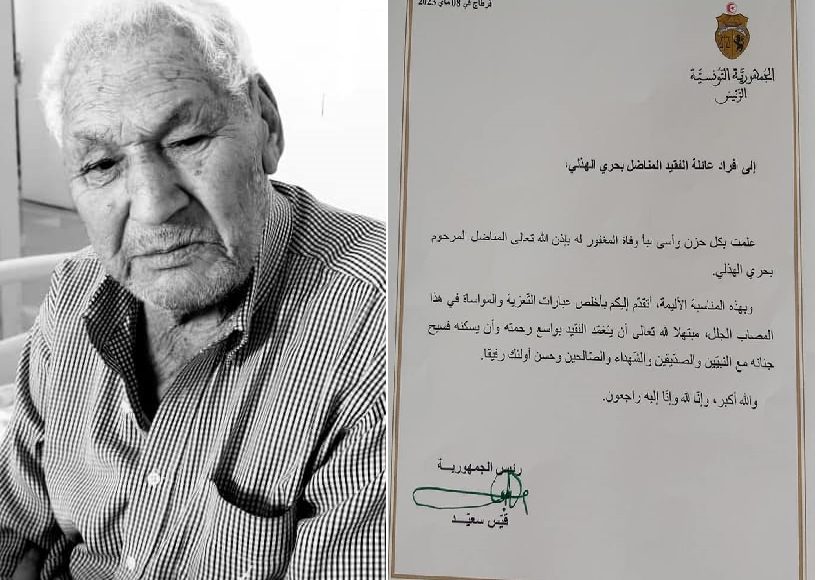 قرطاج في 08 ماي 2023
الجمهورية التونسية
الرئيس
إلى أفراد عائلة الفقيد المناضل بحري الهذلي،
علمت بكل حزن وأسى نبأ وفاة المغفور له بإذن الله تعالى المناضل المرحوم
بحري الهذلي.
وبهذه المناسبة الأليمة، أتقدّم إليكم بأخلص عبارات التّعزية والمواساة في هذا
المصاب الجلل، مبتهلا لله تعالى أن يتغمّد الفقيد بواسع رحمته وأن يسكنه فسيح
جنانه مع النبيّين والصدّيقين والشّهداء والصّالحين وحسن أولئك رفيقا.
والله أكبر، وإنّا لله وإنّا إليه راجعون.
رئيس الجمهوريـــة
قيّس سعيّد